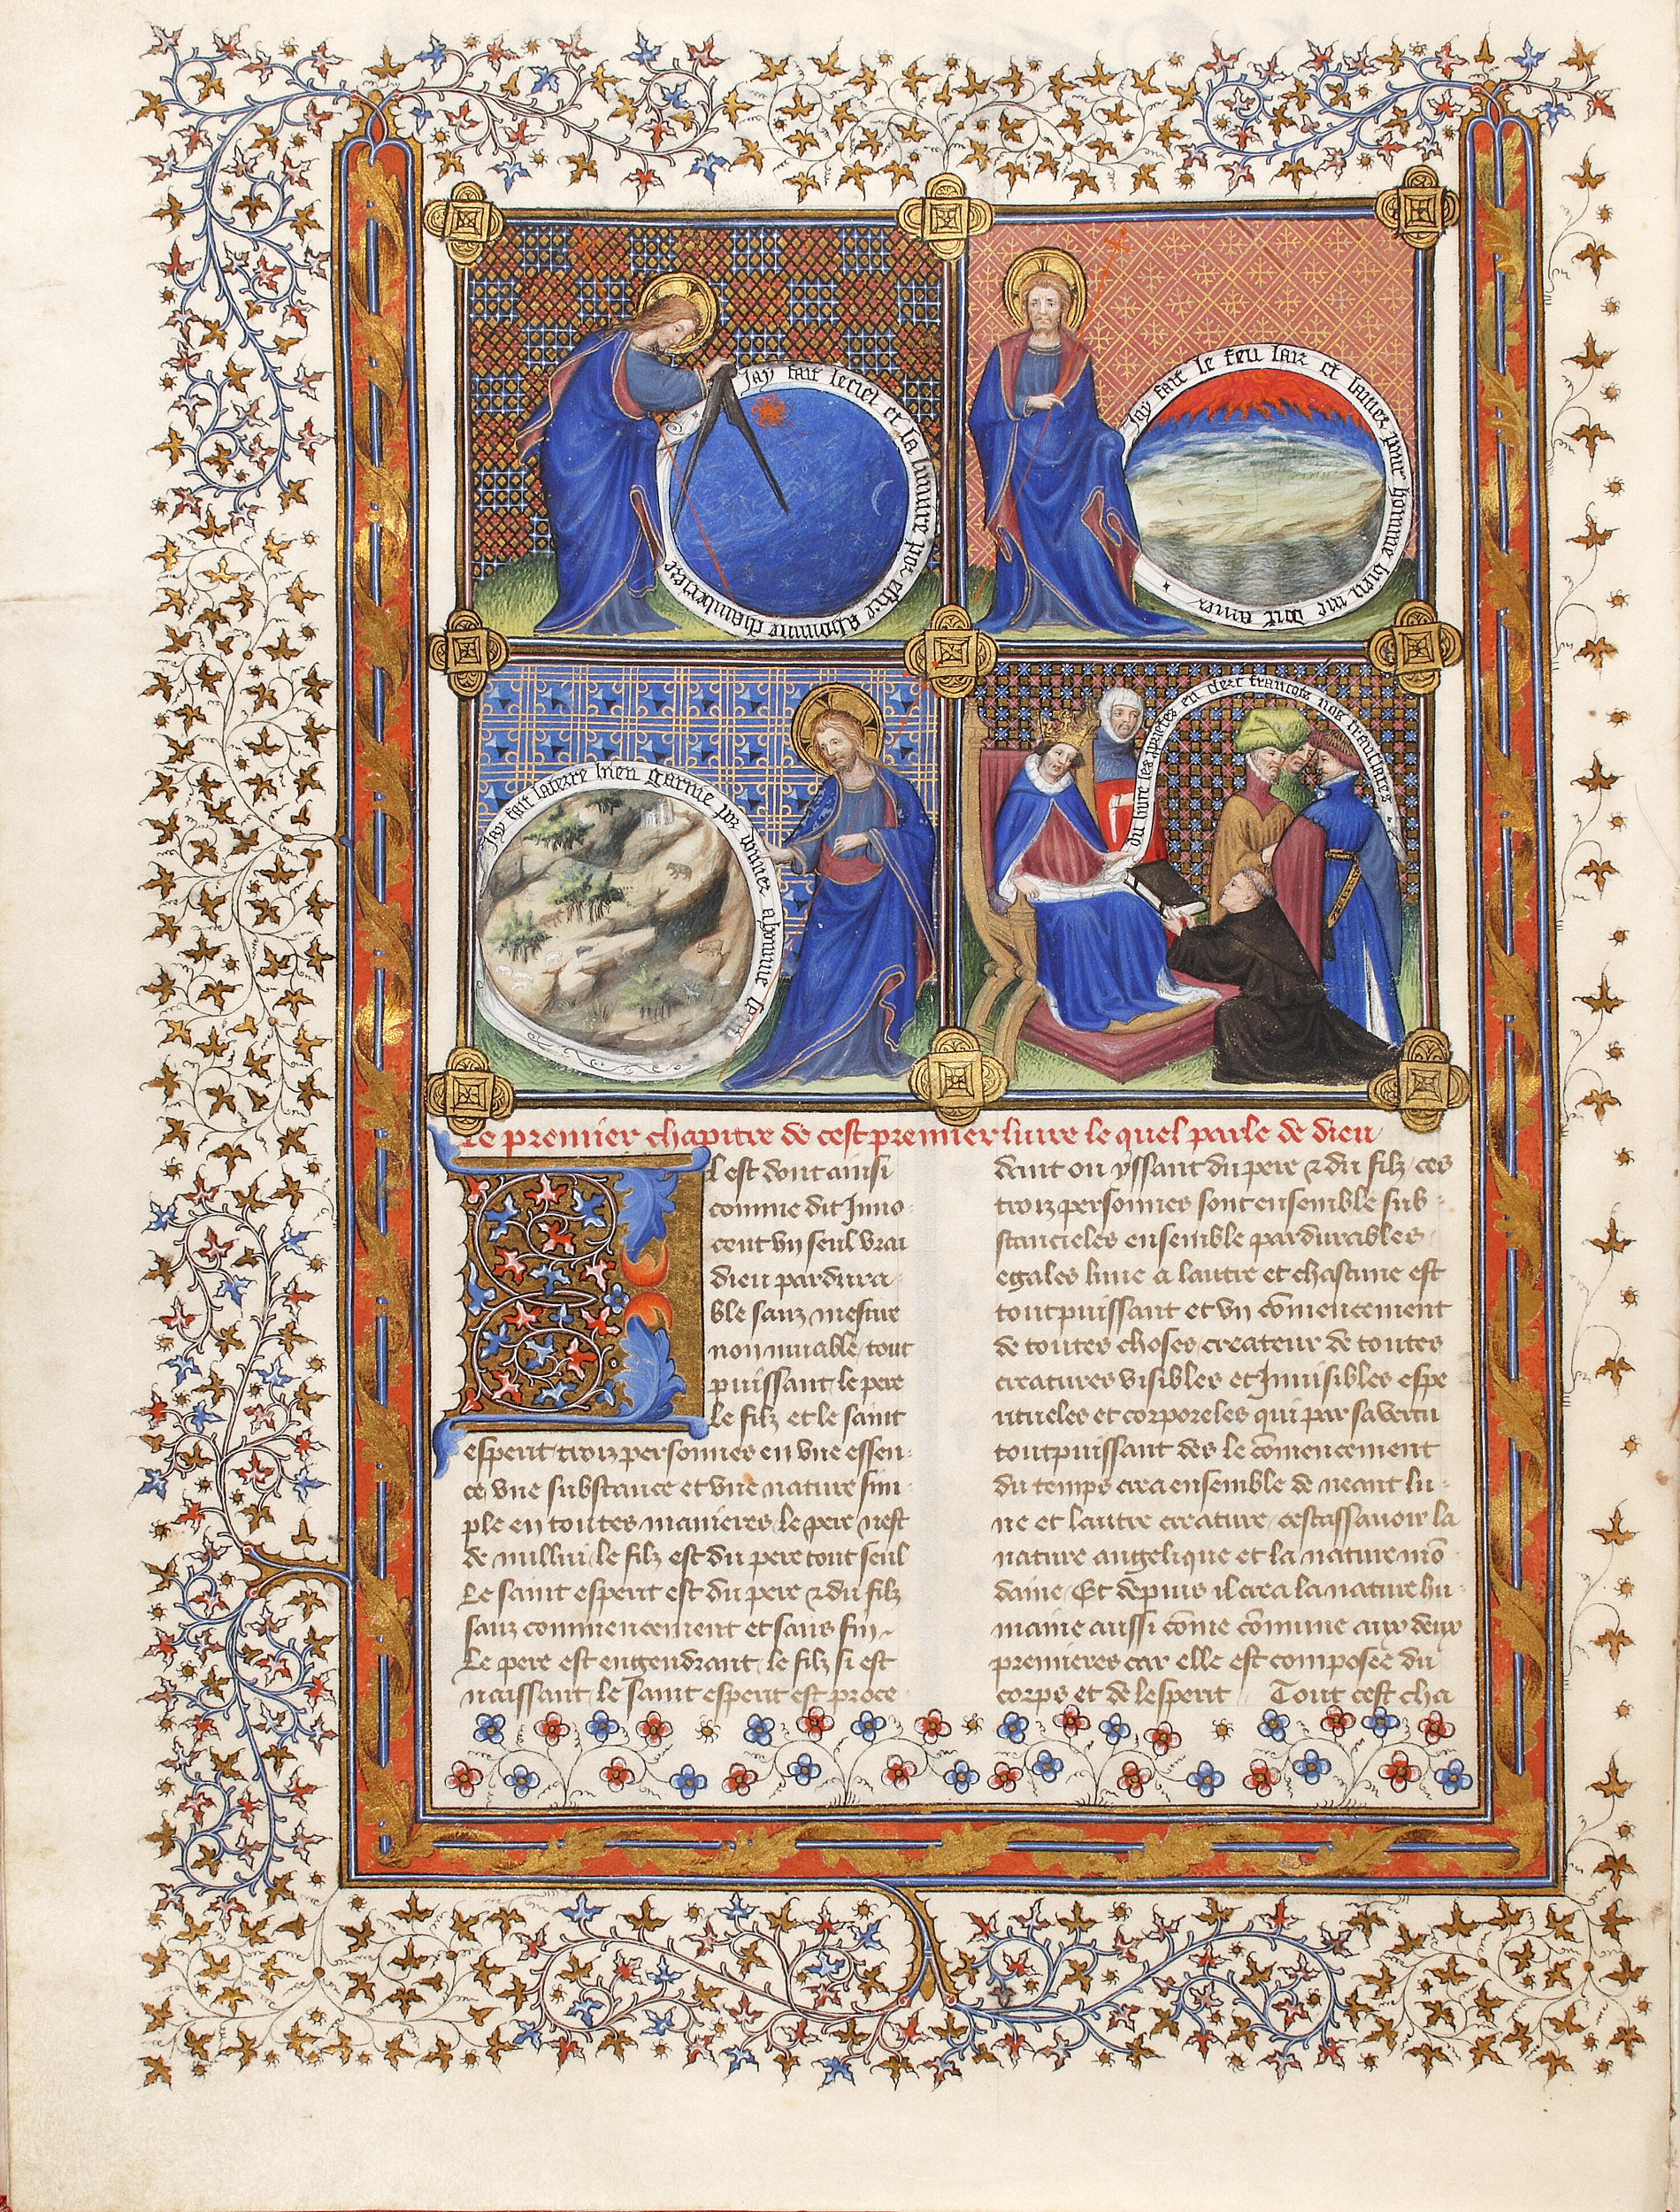 Jay fait le ciel et la lumiere por estre a homme chamberiere
Jay fait le feu lair et liauez pour homme bien me doit amer
Jay fait la terre bien garnie por donner a homme
du livre les prietes en cler francois nos tranclates
Le premier chapitre de cest premier livre le quel parle de dieu
Il est dont ainsi
comme dit Inno
cent vn seul vrai
dieu pardura
ble sanz mesure
non muable tout
puissant le pere
le filz et le saint
esperit troiz personnes en vne essen
ce vne substance et vne nature sim
ple en toutes manieres le pere nest
de nullui le filz est du pere tout seul
Le saint esperit est du pere & du filz
sanz commencement et sans fin
Le pere est engendrant le filz si est
naissant le saint esperit est proce
dant ou yssant du pere & du filz ces
troiz personnes sont ensemble sub
stancieles ensemble pardurables
egales lune a lautre et chascune est
tout puissant et vn cōmencement
de toutes choses createur de toutes
creatures visibles et Invisibles espe
ritueles et corporeles qui par sa vertu
tout puissant des le cōmencement
du temps crea ensemble de neant lu
ne et lautre creature cest assavoir la
nature angelique et la nature mō
daine Et depuis il crea la nature hu
maine aussi cōme cōmune aux deux
premieres car elle est composee du
corps et de lesperit Tout cest cha